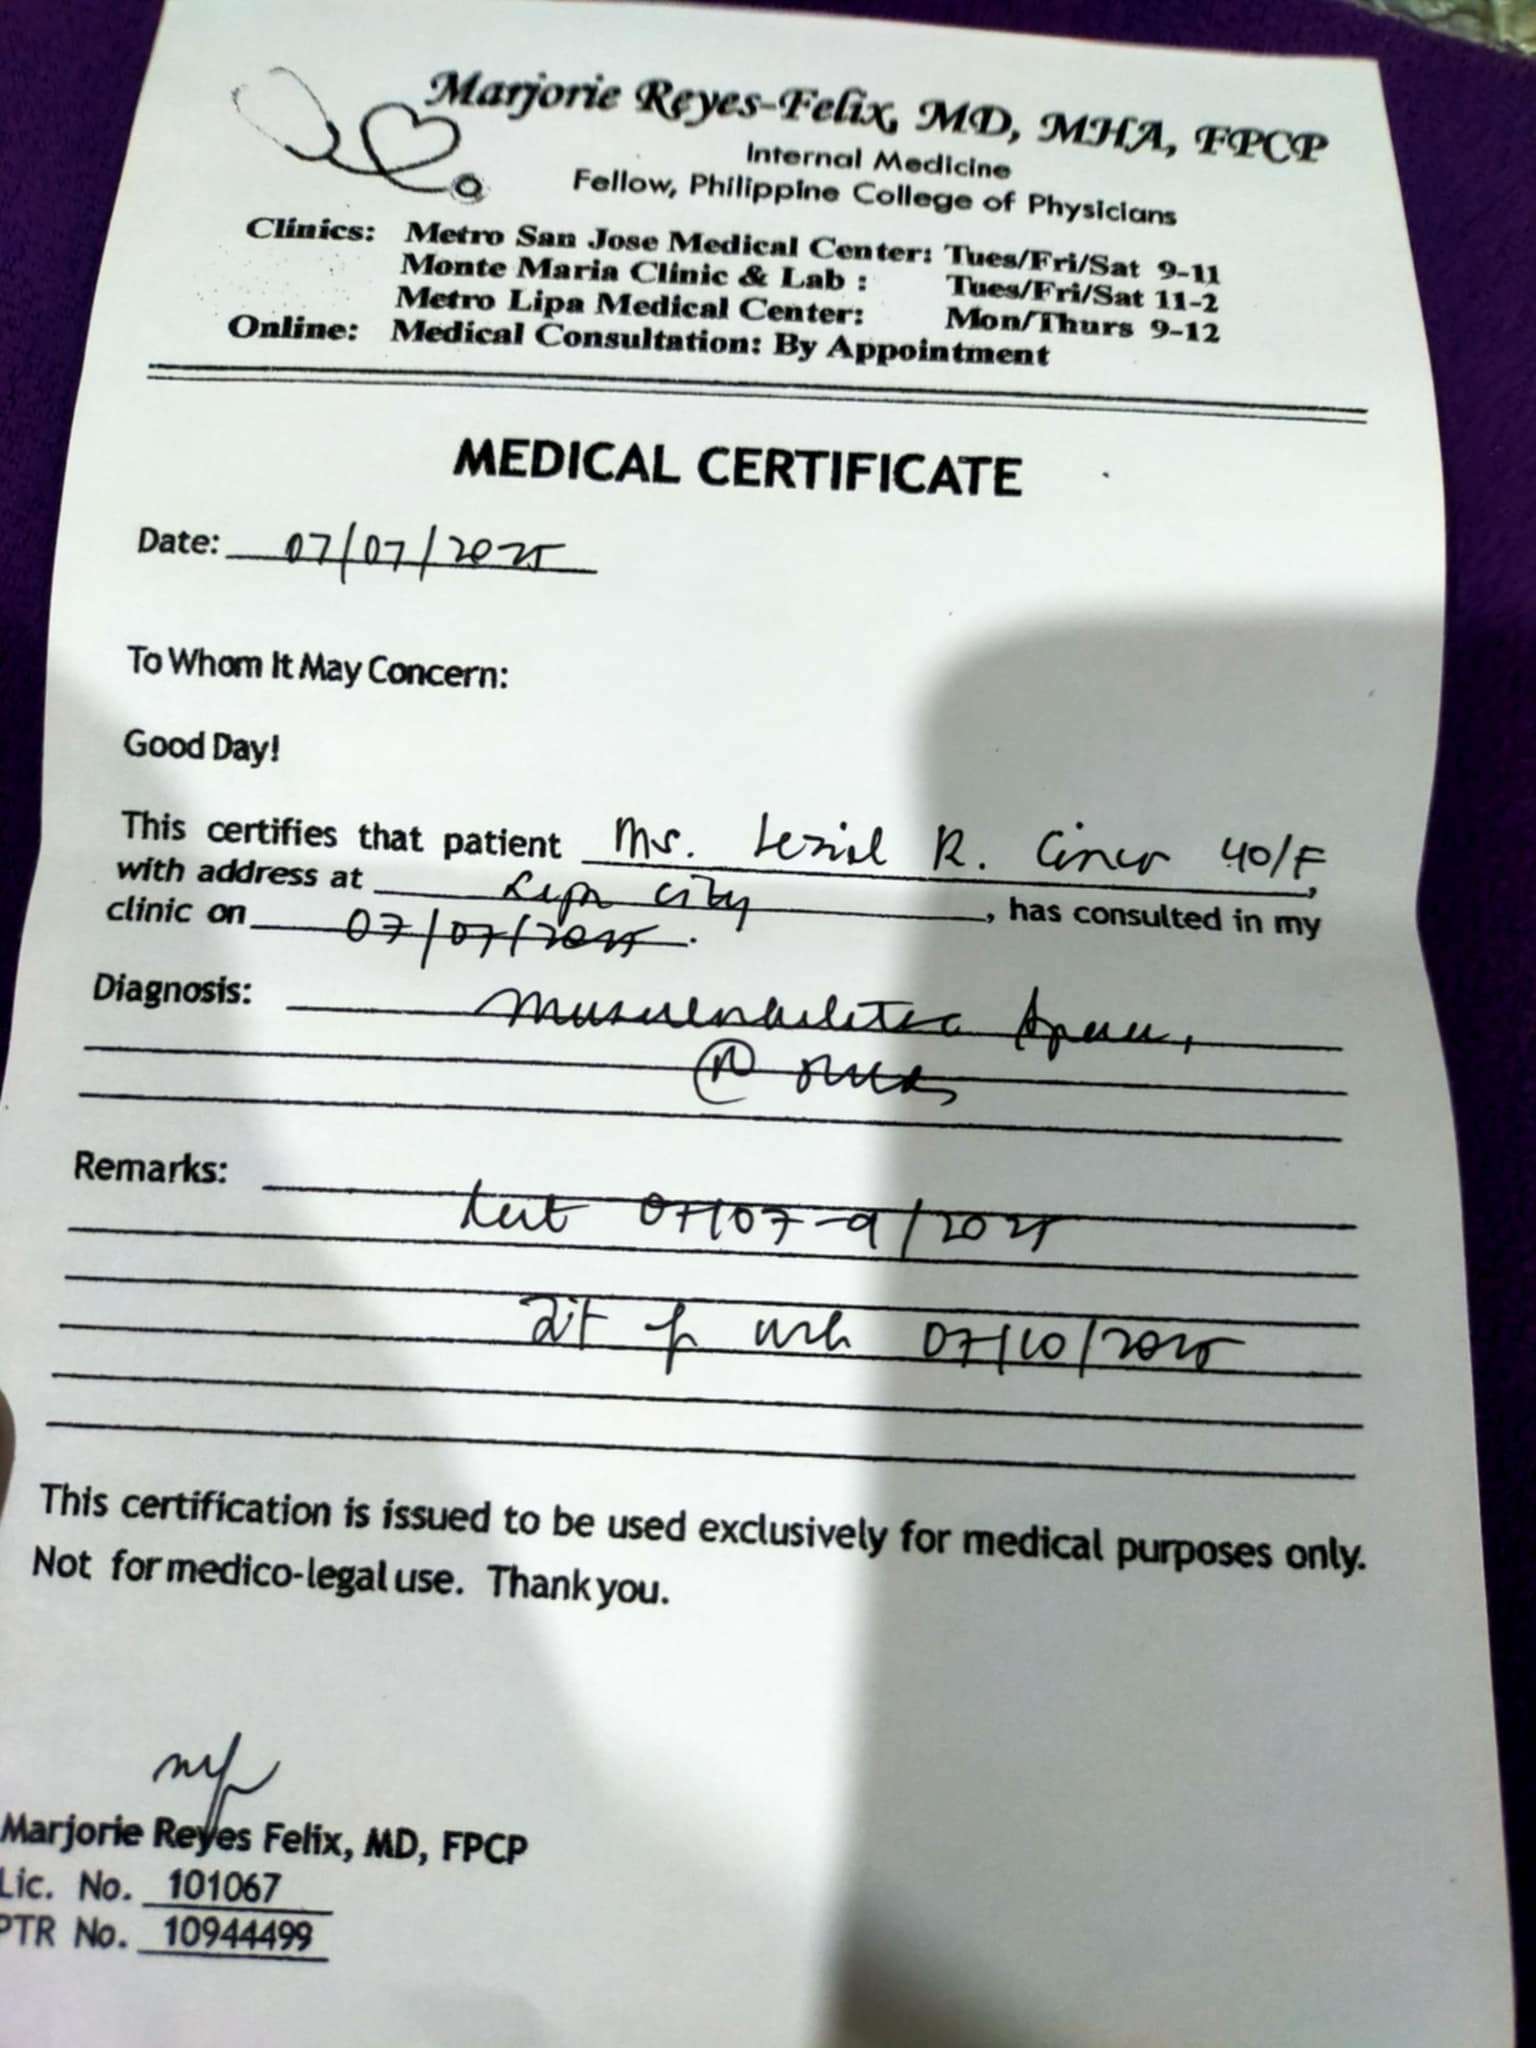 Marjorie Reyes-Felix, MD, MHA, FPCP
Internal Medicine
Fellow, Philippine College of Physicians
Clinics: Metro San Jose Medical Center: Tues/Fri/Sat 9-11
Monte Maria Clinic & Lab : Tues/Fri/Sat 11-2
Metro Lipa Medical Center: Mon/Thurs 9-12
Online: Medical Consultation: By Appointment
MEDICAL CERTIFICATE
Date: 07/07/2025
To Whom It May Concern:
Good Day!
This certifies that patient Ms. R. 40/F,
with address at Lipa City, has consulted in my
clinic on 07/07/2025.
Diagnosis: Musculoskeletal
Remarks:
07/07-9/2025
07/10/2025
This certification is issued to be used exclusively for medical purposes only.
Not for medico-legal use. Thank you.
Marjorie Reyes Felix, MD, FPCP
Lic. No. 101067
PTR No. 10944499